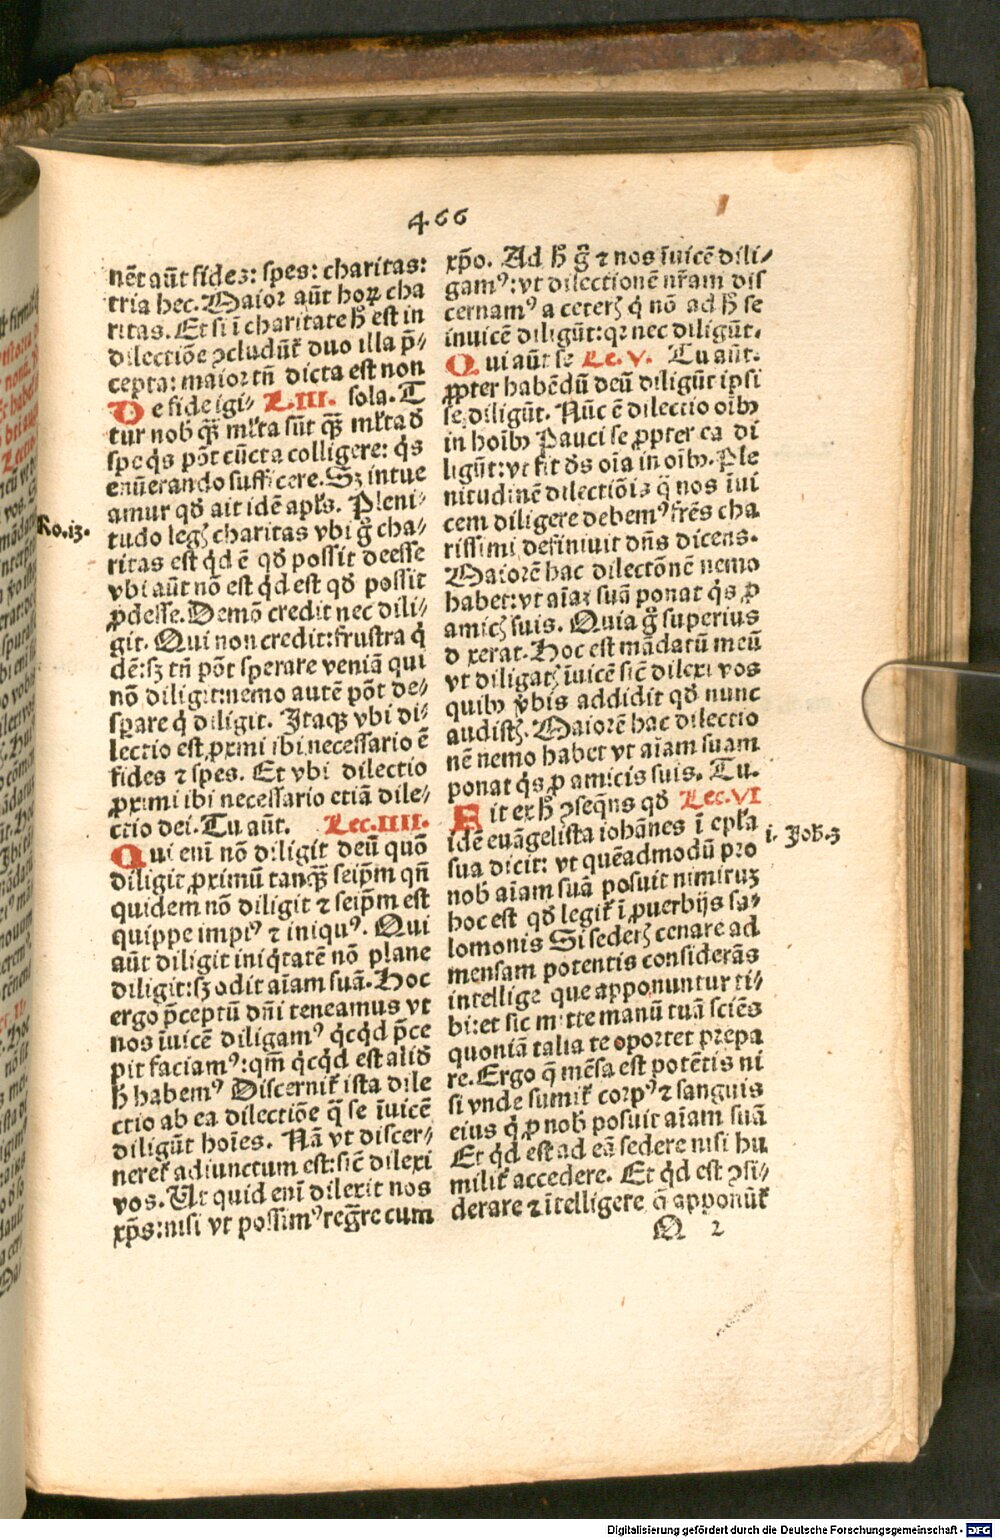 466
nēt aūt fides: spes: charitas:
tria hec. Maior aūt hoꝝ cha
ritas. Et si ī charitate h̄ est in
dilectiōe ꝯcludūt᷑ duo illa p̄-
cepta: maior tn̄ dicta est non
De fide igi- L. III. sola. T
tur nob̄ qꝫ ml̄ta sūt qꝫ ml̄ta đ
spe q̇s pōt cūcta colligere: q̇s
enūerando sufficere. Sꝫ intue
amur qđ ait idē apl̄s. Pleni-
Ro. iꝫ.
tudo legꝭ charitas vbi g̊ cha-
ritas est q̇d ē qđ possit deesse
vbi aūt nō est q̇d est qđ possit
ꝓdesse. Demō credit nec dili-
git. Qui non credit: frustra q̇
dē: sꝫ tn̄ pōt sperare veniā qui
nō diligit: nemo autē pōt de-
sperare q̇ diligit. Itaqꝫ vbi di-
lectio est ꝓximi ibi necessario ē
fides ⁊ spes. Et vbi dilectio
ꝓximi ibi necessario etiā dile-
ctio dei. Tu aūt. Lec. IIII.
Qui enī nō diligit deū quō
diligit ꝓximū tanqꝫ seip̄m qn̄
quidem nō diligit ⁊ seip̄m est
quippe impiꝰ ⁊ iniquꝰ. Qui
aūt diligit iniq̇tatē nō plane
diligit: sꝫ odit aīam suā. Hoc
ergo p̄ceptū dn̄i teneamus vt
nos īuicē diligamꝰ q̇cq̇d p̄ce
pit faciamꝰ: qm̄ q̇cq̇d est aliđ
h̄ habemꝰ Discernit᷑ ista dile
ctio ab ea dilectiōe q̄ se īuicē
diligūt hoīes. Nā vt discer-
neret᷑ adiunctum est: sic̄ dilexi
vos. Ut quid enī dilexit nos
xp̄s: nisi vt possimꝰ reg̅re cum
xp̄o. Ad h̄ g̊ ⁊ nos īuicē dili-
gamꝰ: vt dilectionē nr̄am dis
cernamꝰ a ceterꝭ q̇ nō ad h̄ se
inuicē diligūt: qꝛ nec diligūt.
Qui aūt se Le. V. Tu aūt.
ꝓpter habēdū deū diligūt ipsi
se diligūt. Nūc ē dilectio oībꝫ
in hoībꝫ Pauci se ꝓpter ea di
ligūt: vt sit đs oīa in oībꝫ. Ple
nitudinē dilectiōis q̄ nos īui
cem diligere debemꝰ fr̄es cha
rissimi definiuit dn̄s dicens.
Maiorē hac dilectōnē nemo
habet: vt aīaꝫ suā ponat q̇s ꝓ
amicꝭ suis. Quia g̊ superius
d xerat. Hoc est mādatū meū
vt diligatꝭ īuicē sic̄ dilexi vos
quibꝫ v̄bis addidit qđ nunc
audistꝭ. Maiorē hac dilectio
nē nemo habet vt aīam suam
ponat q̇s ꝓ amicis suis. Tu.
Fit ex h̄ ꝯseq̄ns qđ Lec. VI
idē euāgelista iohānes ī epl̄a
i. Joh. 3
sua dicit: vt quēadmodū pro
nob̄ aīam suā posuit nimiruꝫ
hoc est qđ legit᷑ ī ꝓuerbijs sa-
lomonis Si sederꝭ cenare ad
mensam potentis considerās
intellige que apponuntur ti-
bi: et sic m tte manū tuā sciēs
quoniā talia te oportet prepa
re. Ergo q̄ mēsa est potētis ni
si vnde sumit᷑ corpꝰ ⁊ sanguis
eius q̇ ꝓ nob̄ posuit aīam suā
Et q̇d est ad eā sedere nisi hu
milit᷑ accedere. Et q̇d est ꝯsi-
derare ⁊ ītelligere q̄ apponūt᷑
Q 2
Digitalisierung gefördert durch die Deutsche Forschungsgemeinschaft - DFG